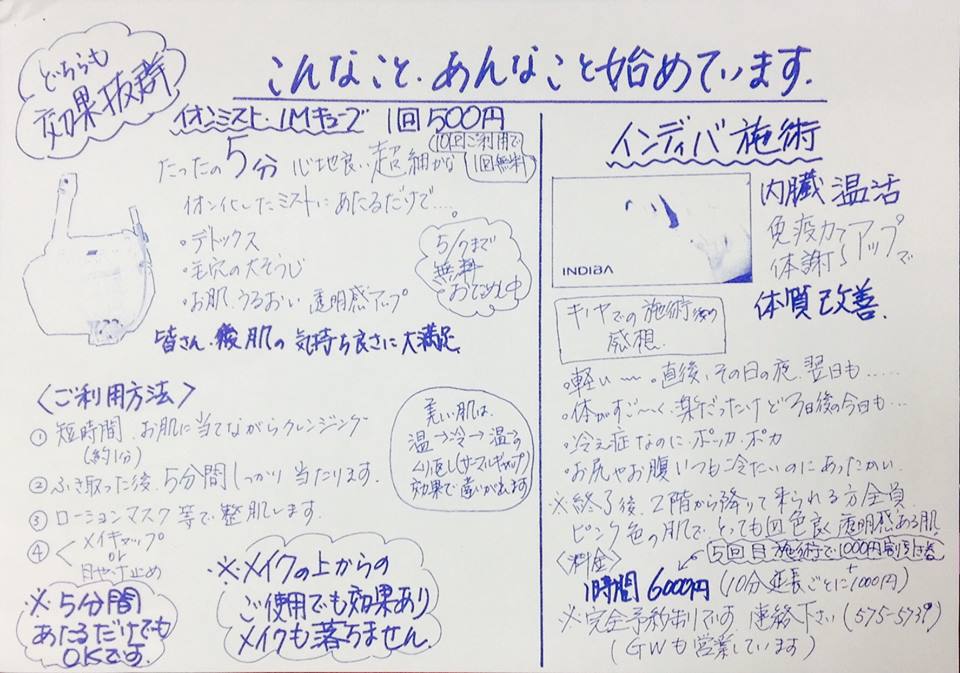 どちらも
効果抜群
こんなこと、あんなこと始めています.
イオンミスト・IMキューブ 1回500円
10回ご利用で
1回無料
たったの5分 心地良い超細かな
イオン化したミストにあたるだけで.....
・デトックス
・毛穴の大そうじ
・お肌、うるおい、透明感アップ
5/7まで
無料
おためし中
皆さん、後肌の気持ち良さに大満足
〈ご利用方法〉
① 短時間、お肌に当てながらクレンジング
(約1分)
② ふき取った後、5分間しっかり当たります.
③ ローションマスク等で整肌します.
④ メイキャップ
or
日やけ止め
美しい肌は、
温→冷→温の
くり返し(サーマルギャップ)
効果で違いが出ます
※5分間
あたるだけでも
OKです.
※メイクの上からの
ご使用でも効果あり
メイクも落ちません.
インディバ施術
INDIBA
内臓温活
免疫力アップ
体謝アップで
体質改善.
キヤでの施術後の
感想.
・軽い〜 ・直後、その日の夜、翌日も......
・体がすご〜く楽だったけど3日後の今日も...
・冷え症なのに、ポッカポカ
・お尻やお腹いつも冷たいのにあったかい.
※終了後、2階から降りて来られる方全員
ピンク色の肌で、とっても血色良く透明感ある肌
〈料金〉
5回目施術で1000円割引き巻
1時間 6000円 (10分延長ごとに+1000円)
※完全予約制です 連絡下さい (575-5739)
(GWも営業しています)